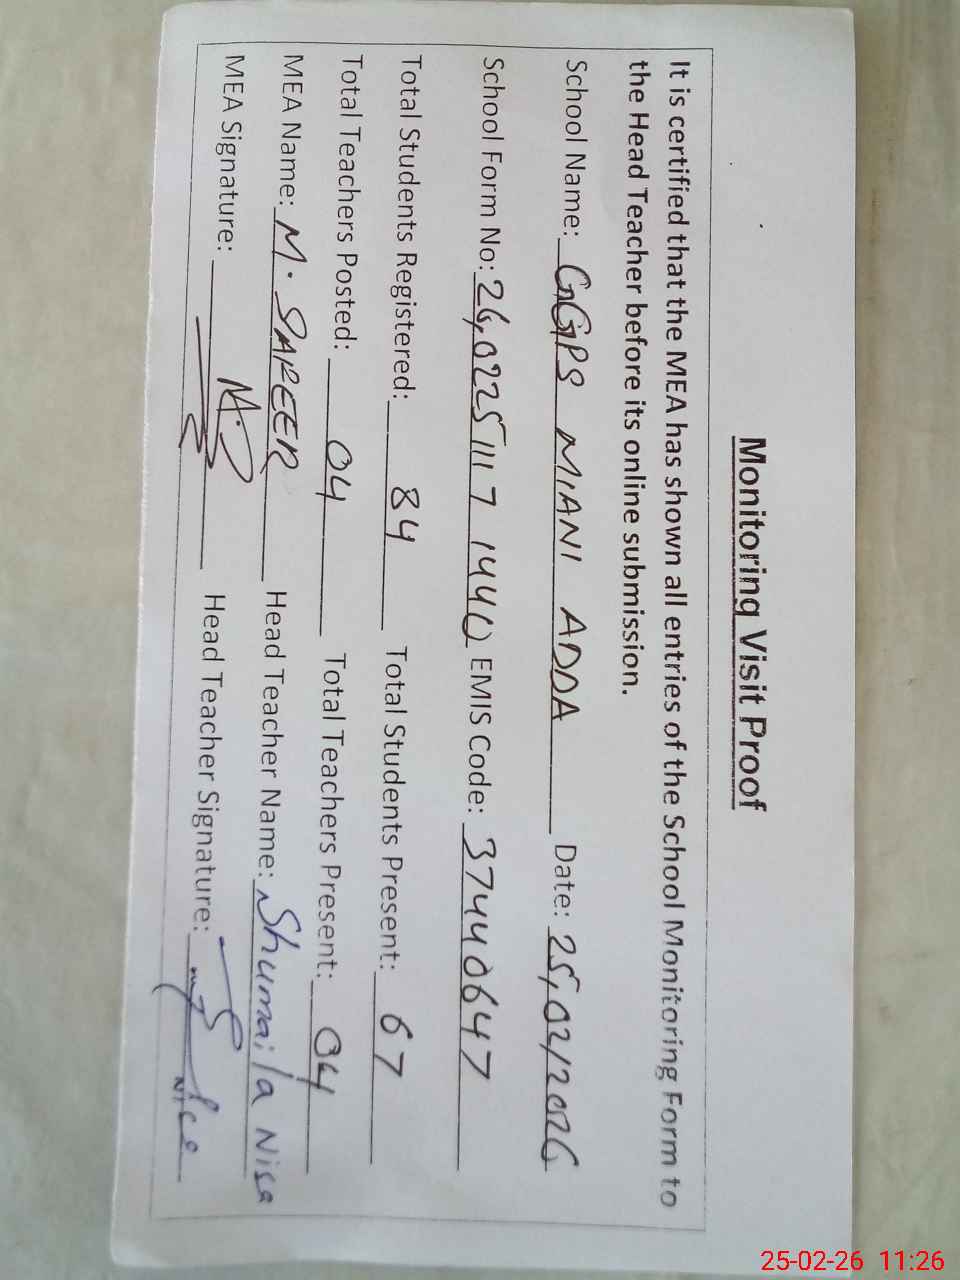 Monitoring Visit Proof
It is certified that the MEA has shown all entries of the School Monitoring Form to
the Head Teacher before its online submission.
School Name: GGPS MIANI ADDA Date: 25/02/2026
School Form No: 26,0225 111 7 1440 EMIS Code: 37440647
Total Students Registered: 84 Total Students Present: 67
Total Teachers Posted: 04 Total Teachers Present: 04
MEA Name: M. SAPEER Head Teacher Name: Shumaila Nisa
MEA Signature: Head Teacher Signature:
25-02-26 11:26